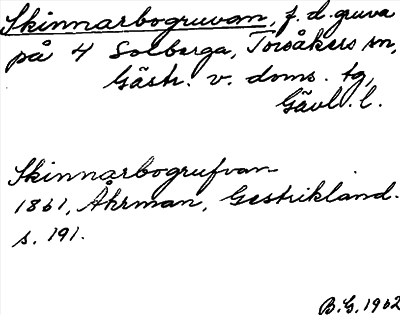 Skinnarbogruvan, f.d. gruva
på 4 Solberga, Torsåkers sn,
Gästr. v. doms. tg,
Gävl. l.
Skinnarbogrufvan
1861, Åhrman, Gestrikland.
s. 191.
B.G. 1962